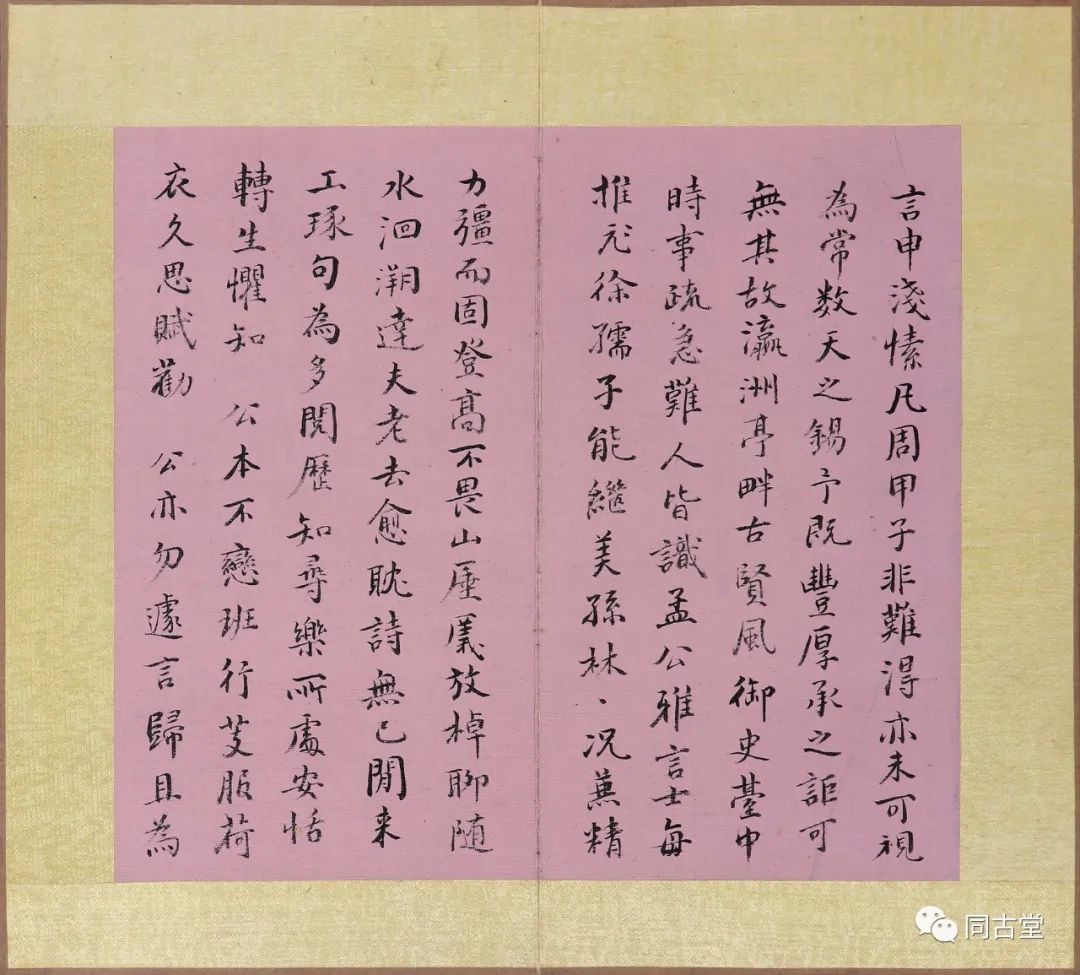 言申淺愫凡周甲子非難得亦未可視
為常数天之錫予既豐厚承之詎可
無其故瀛洲亭畔古賢風御史臺中
時事疏急難人皆識孟公雅言士每
推元徐孺子能繼美孫林、况兼精
力彊而固登高不畏山厓㕒放棹聊随
水洄溯達夫老去愈耽詩無已閒来
工琢句為多閱歷知尋樂所處安恬
轉生懼知 公本不戀班行芰服荷
衣久思賦勸 公亦勿遽言歸且為
同古堂